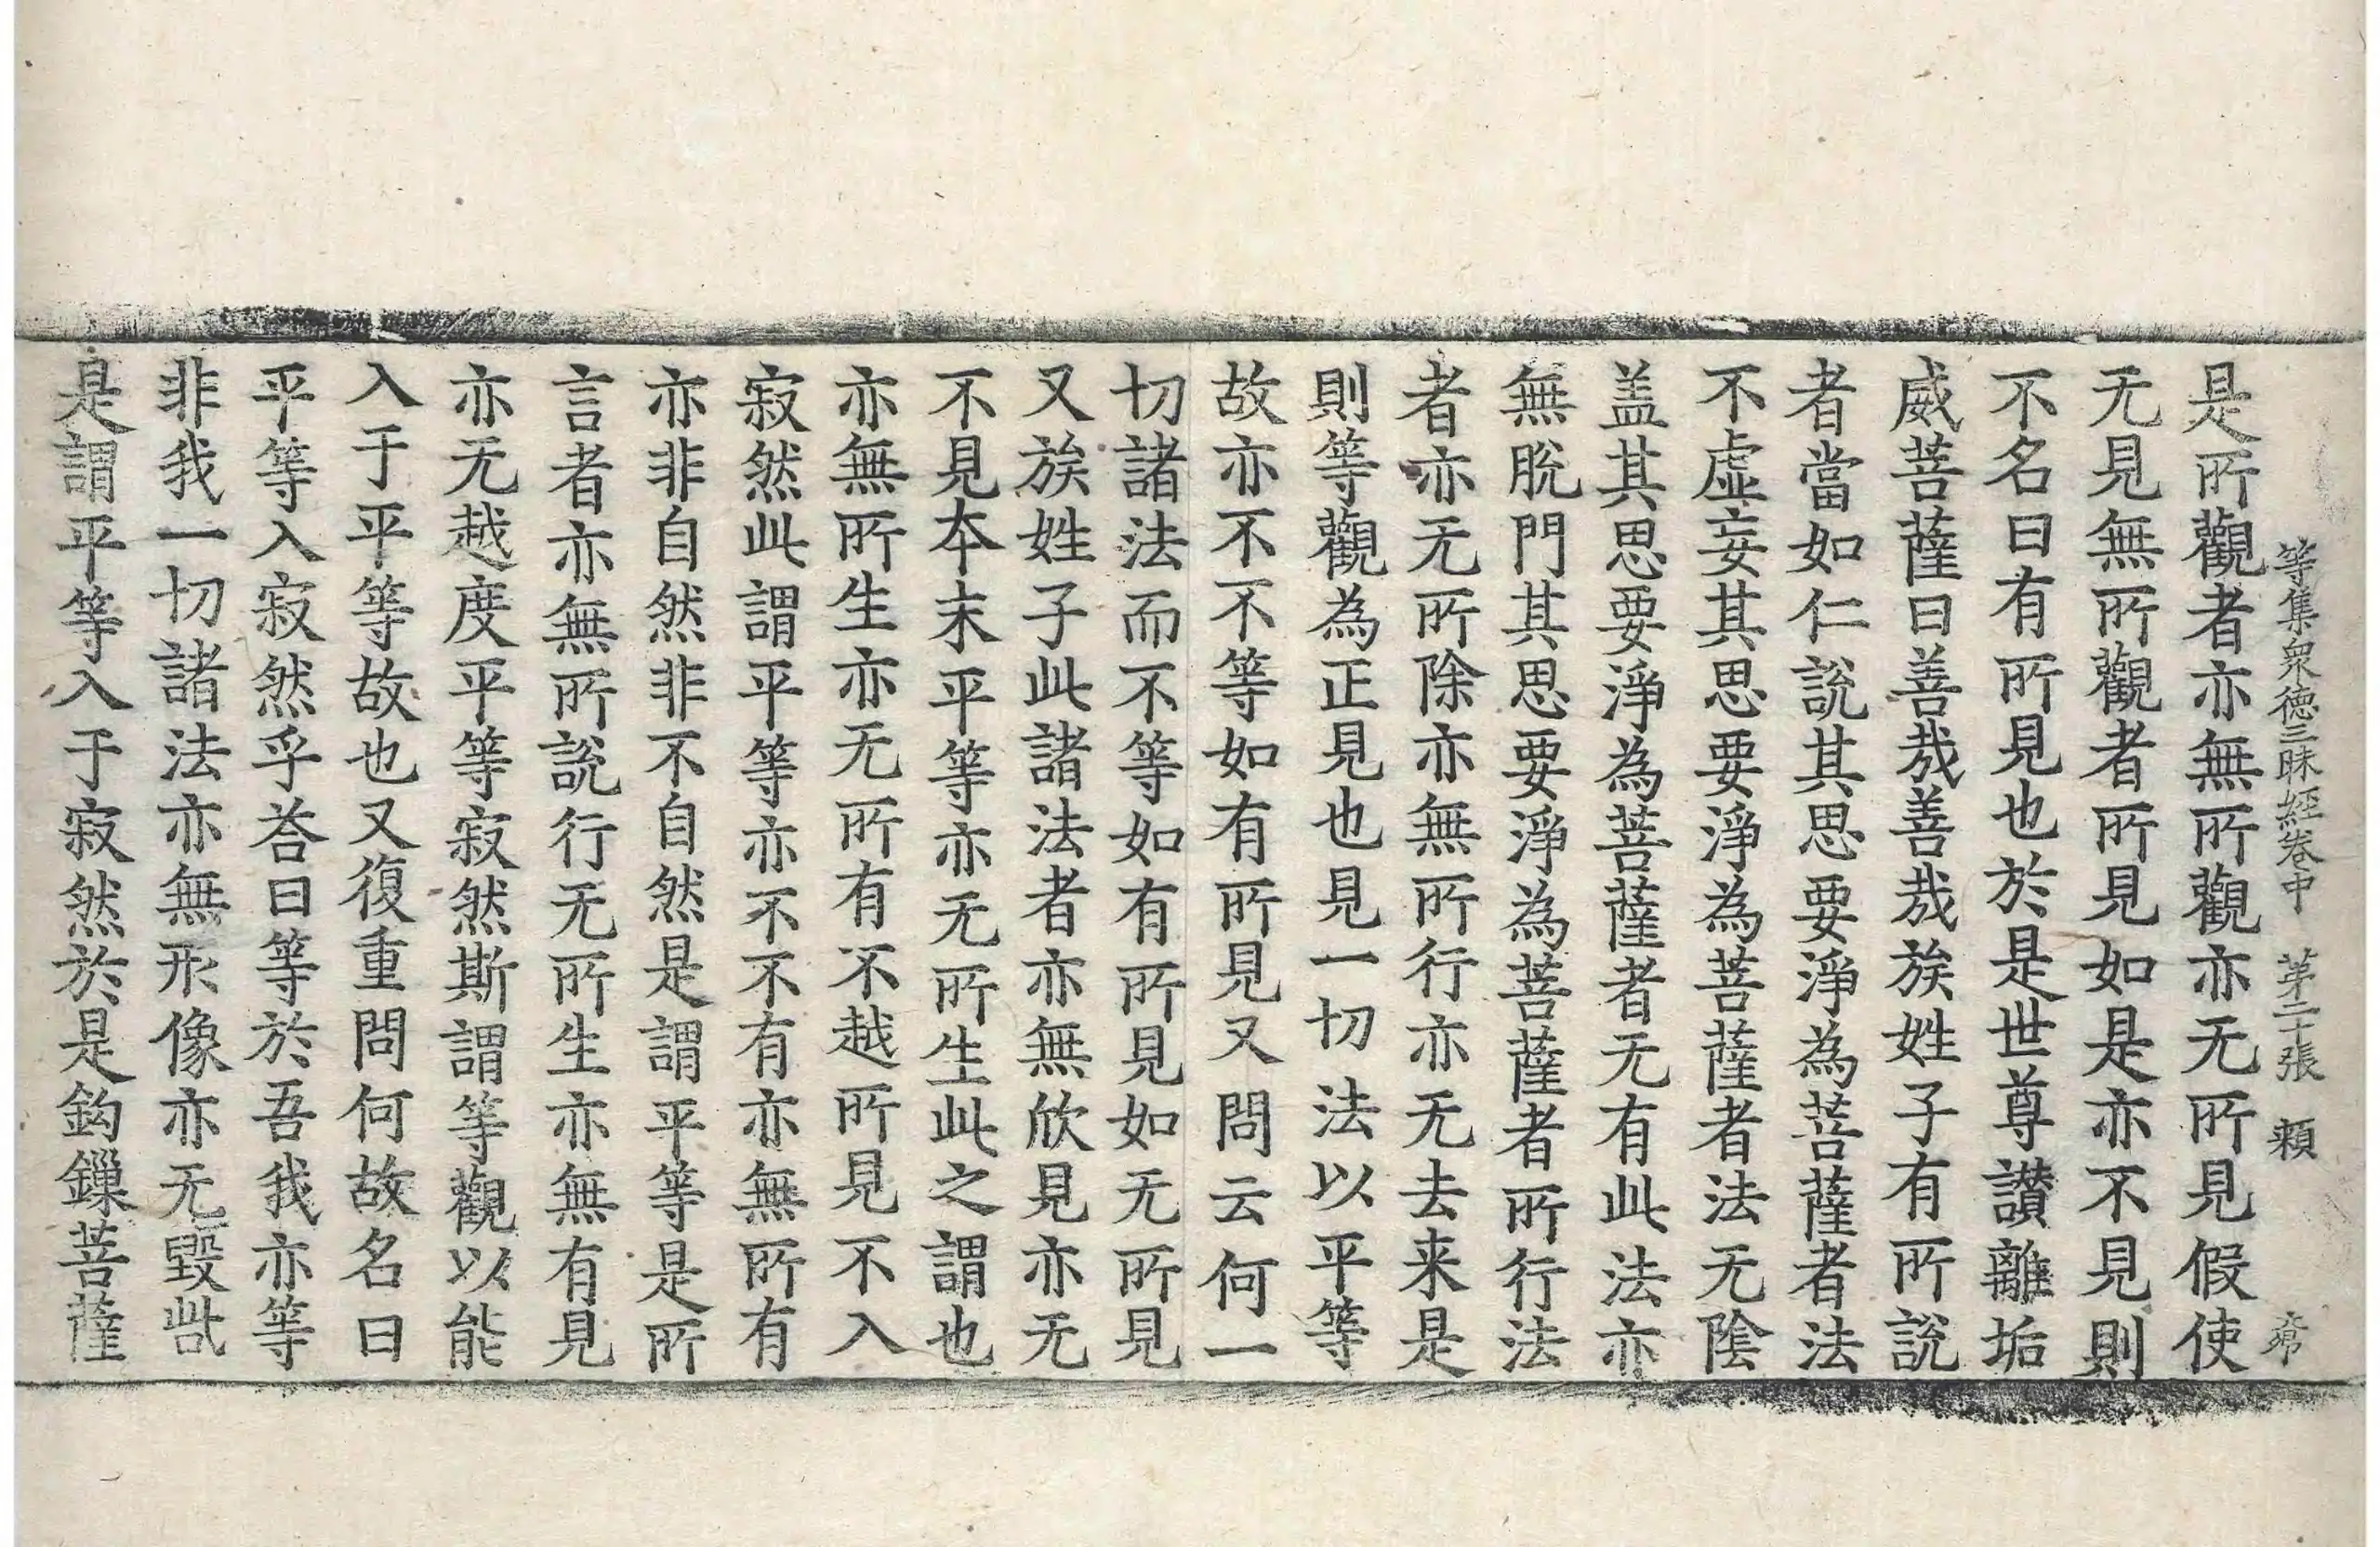 等集衆德三昧經卷中 第二十張 賴
是所觀者亦無所觀亦无所見假使
无見無所觀者所見如是亦不見則
不名曰有所見也於是世尊讃離垢
威菩薩曰善㢤善㢤族姓子有所說
者當如仁說其思要淨為菩薩者法
不虛妄其思要淨為菩薩者法无陰
盖其思要淨為菩薩者无有此法亦
無脫門其思要淨為菩薩者所行法
者亦无所除亦無所行亦无去来是
則等觀為正見也見一切法以平等
故亦不不等如有所見又問云何一
切諸法而不等如有所見如无所見
又族姓子此諸法者亦無欣見亦无
不見本末平等亦无所生此之謂也
亦無所生亦无所有不越所見不入
寂然此謂平等亦不不有亦無所有
亦非自然非不自然是謂平等是所
言者亦無所說行无所生亦無有見
亦无越度平等寂然斯謂等觀以能
入于平等故也又復重問何故名曰
平等入寂然乎荅曰等於吾我亦等
非我一切諸法亦無形像亦无毀呰
是謂平等入于寂然於是鈎鏁菩薩